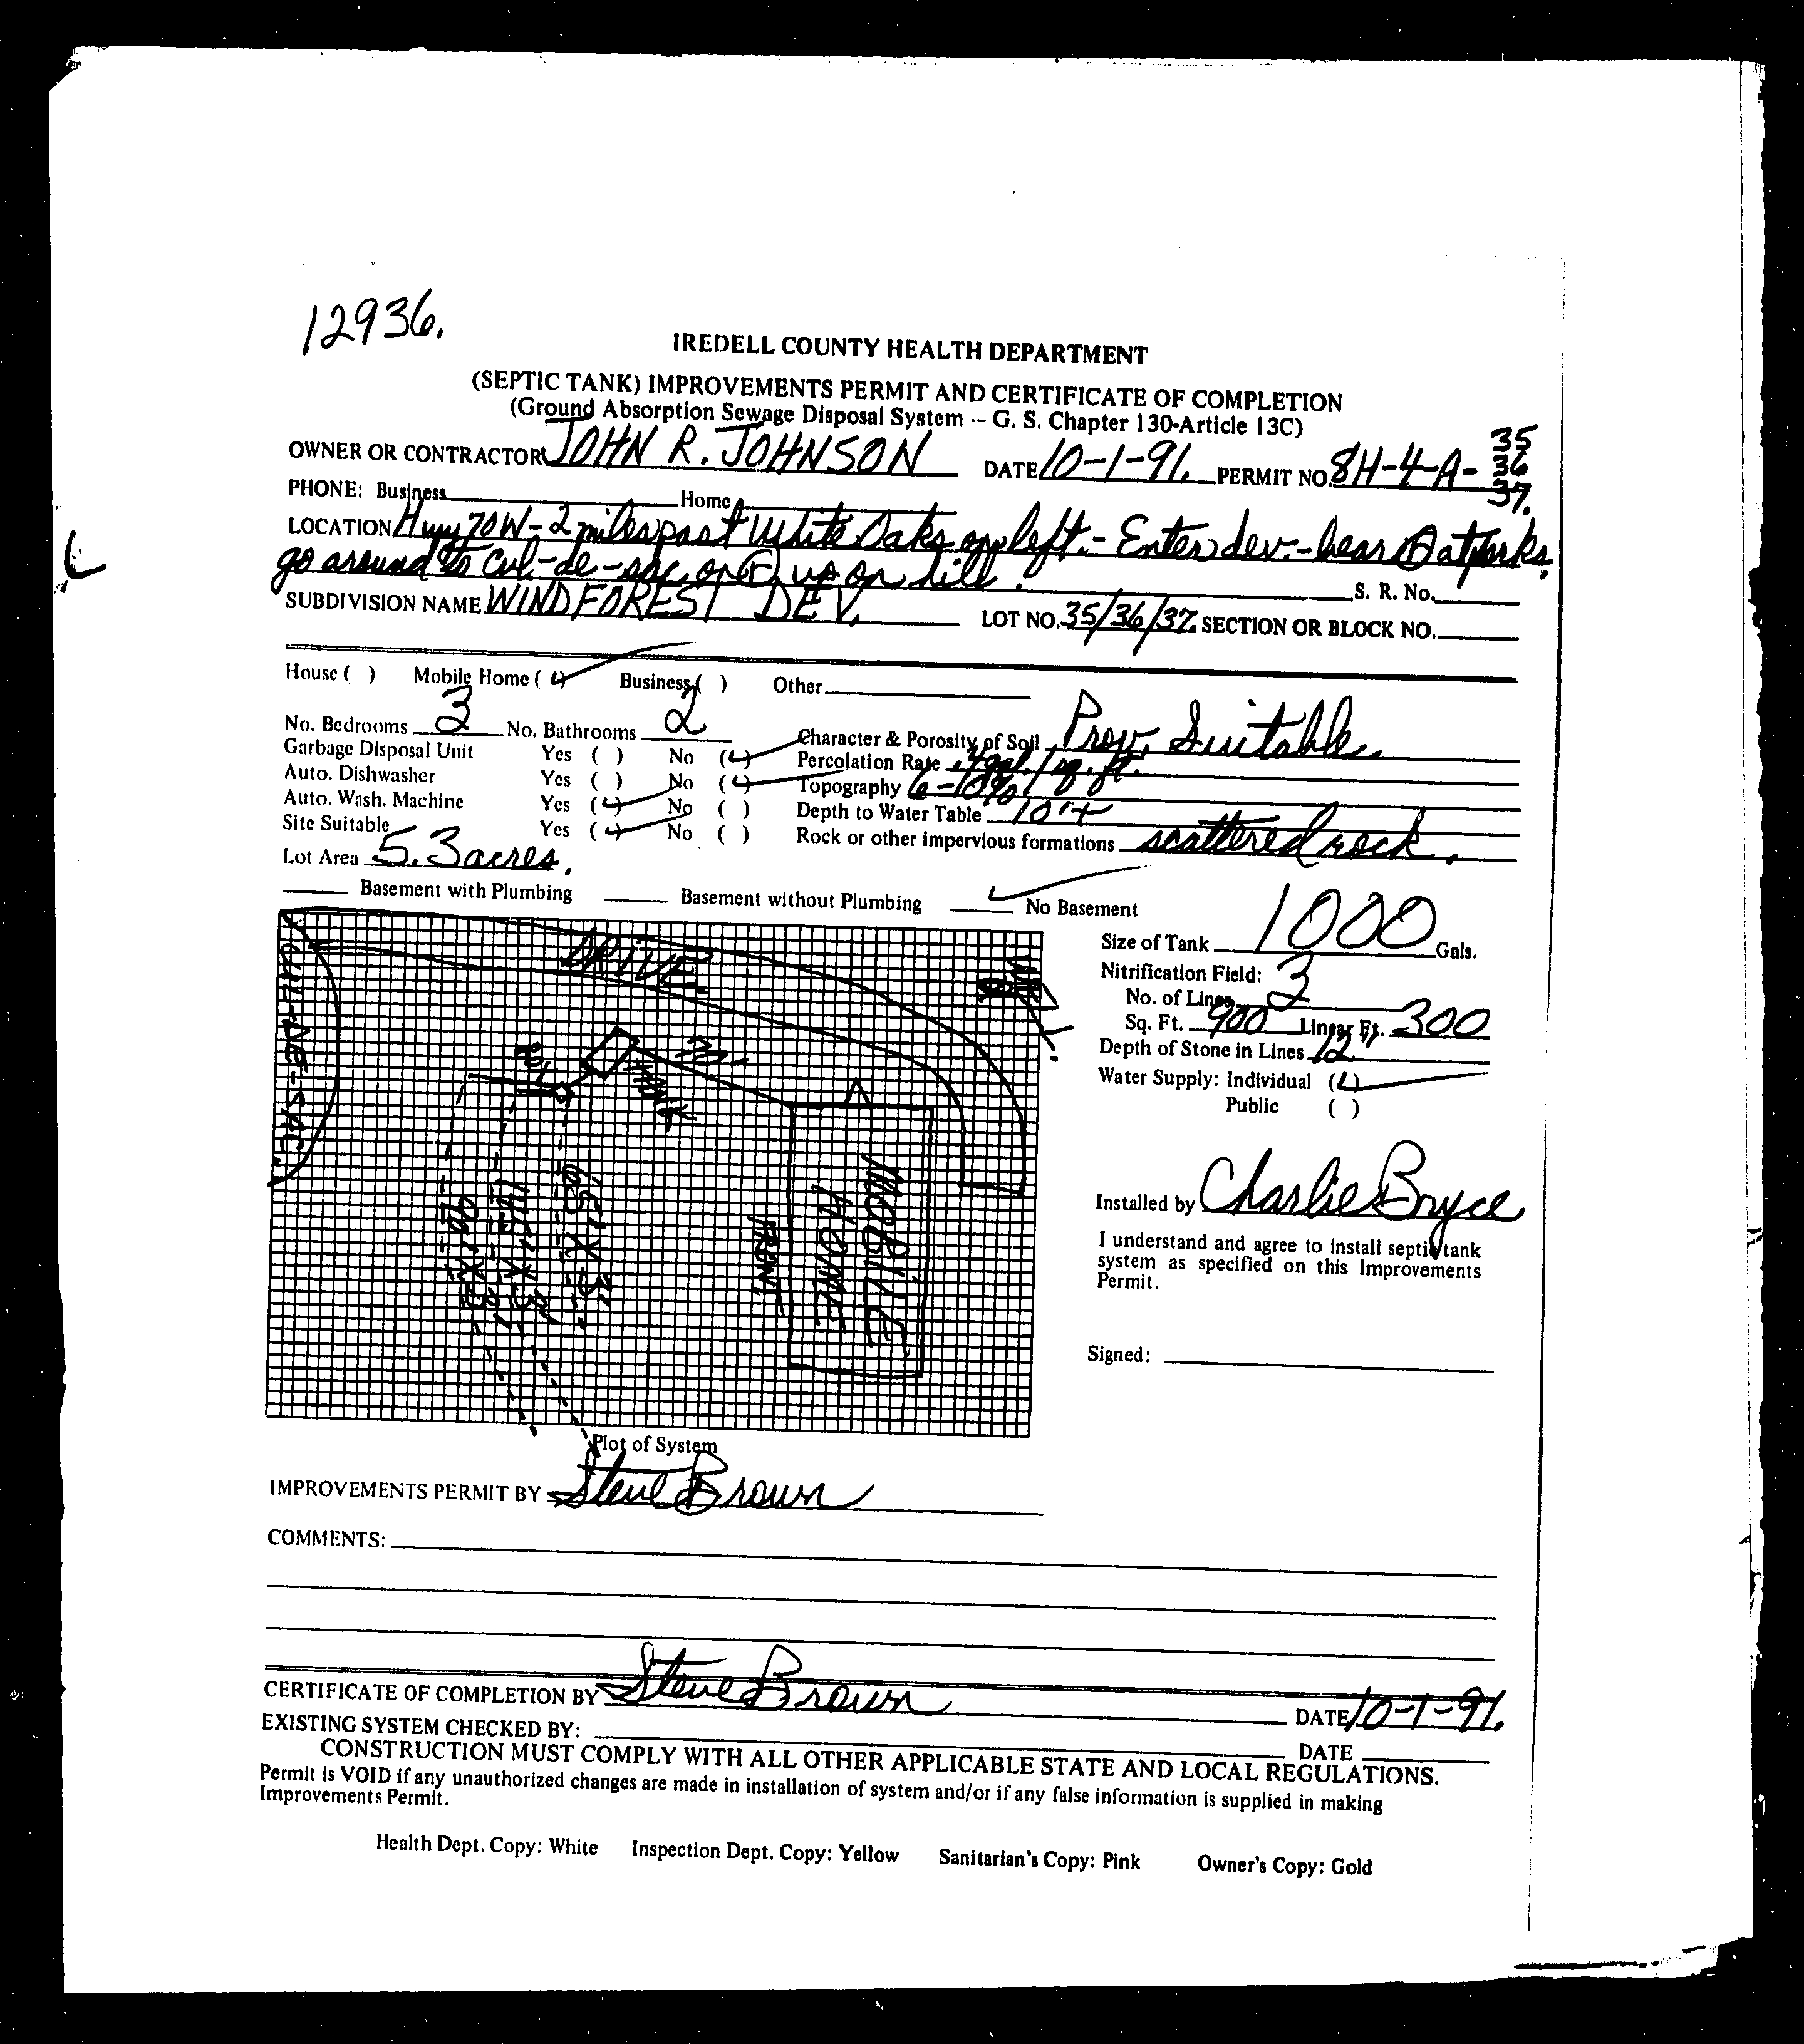 12936.
IREDELL COUNTY HEALTH DEPARTMENT
(SEPTIC TANK) IMPROVEMENTS PERMIT AND CERTIFICATE OF COMPLETION
(Ground Absorption Sewage Disposal System -- G. S. Chapter 130-Article 13C)
OWNER OR CONTRACTOR JOHN R. JOHNSON DATE 10-1-91. PERMIT NO. 8H-4-A- 35 36 37.
PHONE: Business Home
LOCATION Hwy 70W - 2 miles past White Oaks on left. - Enter dev. - bear R at forks.
go around to Cul-de-sac on R up on hill.
S. R. No.
SUBDIVISION NAME WINDFOREST DEV. LOT NO. 35/36/37. SECTION OR BLOCK NO.
House ( ) Mobile Home (✓) Business ( ) Other
No. Bedrooms 3 No. Bathrooms 2 Character & Porosity of Soil Prov. Suitable.
Garbage Disposal Unit Yes ( ) No (✓) Percolation Rate .4 gal./sq. ft.
Auto. Dishwasher Yes ( ) No (✓) Topography 6-10%
Auto. Wash. Machine Yes (✓) No ( ) Depth to Water Table 10'+
Site Suitable Yes (✓) No ( ) Rock or other impervious formations scattered rock.
Lot Area 5.3 acres.
Basement with Plumbing Basement without Plumbing ✓ No Basement
Size of Tank 1000 Gals.
Nitrification Field:
No. of Lines 3
Sq. Ft. 900 Linear Ft. 300
Depth of Stone in Lines 12"
Water Supply: Individual (✓)
Public ( )
CUL-DE-SAC.
DRIVE.
TANK
MOBILE
HOME
FRONT
Installed by Charlie Bryce
I understand and agree to install septic tank
system as specified on this Improvements
Permit.
Signed:
Plot of System
IMPROVEMENTS PERMIT BY Steve Brown
COMMENTS:
CERTIFICATE OF COMPLETION BY Steve Brown DATE 10-1-91.
EXISTING SYSTEM CHECKED BY: DATE
CONSTRUCTION MUST COMPLY WITH ALL OTHER APPLICABLE STATE AND LOCAL REGULATIONS.
Permit is VOID if any unauthorized changes are made in installation of system and/or if any false information is supplied in making
Improvements Permit.
Health Dept. Copy: White Inspection Dept. Copy: Yellow Sanitarian's Copy: Pink Owner's Copy: Gold